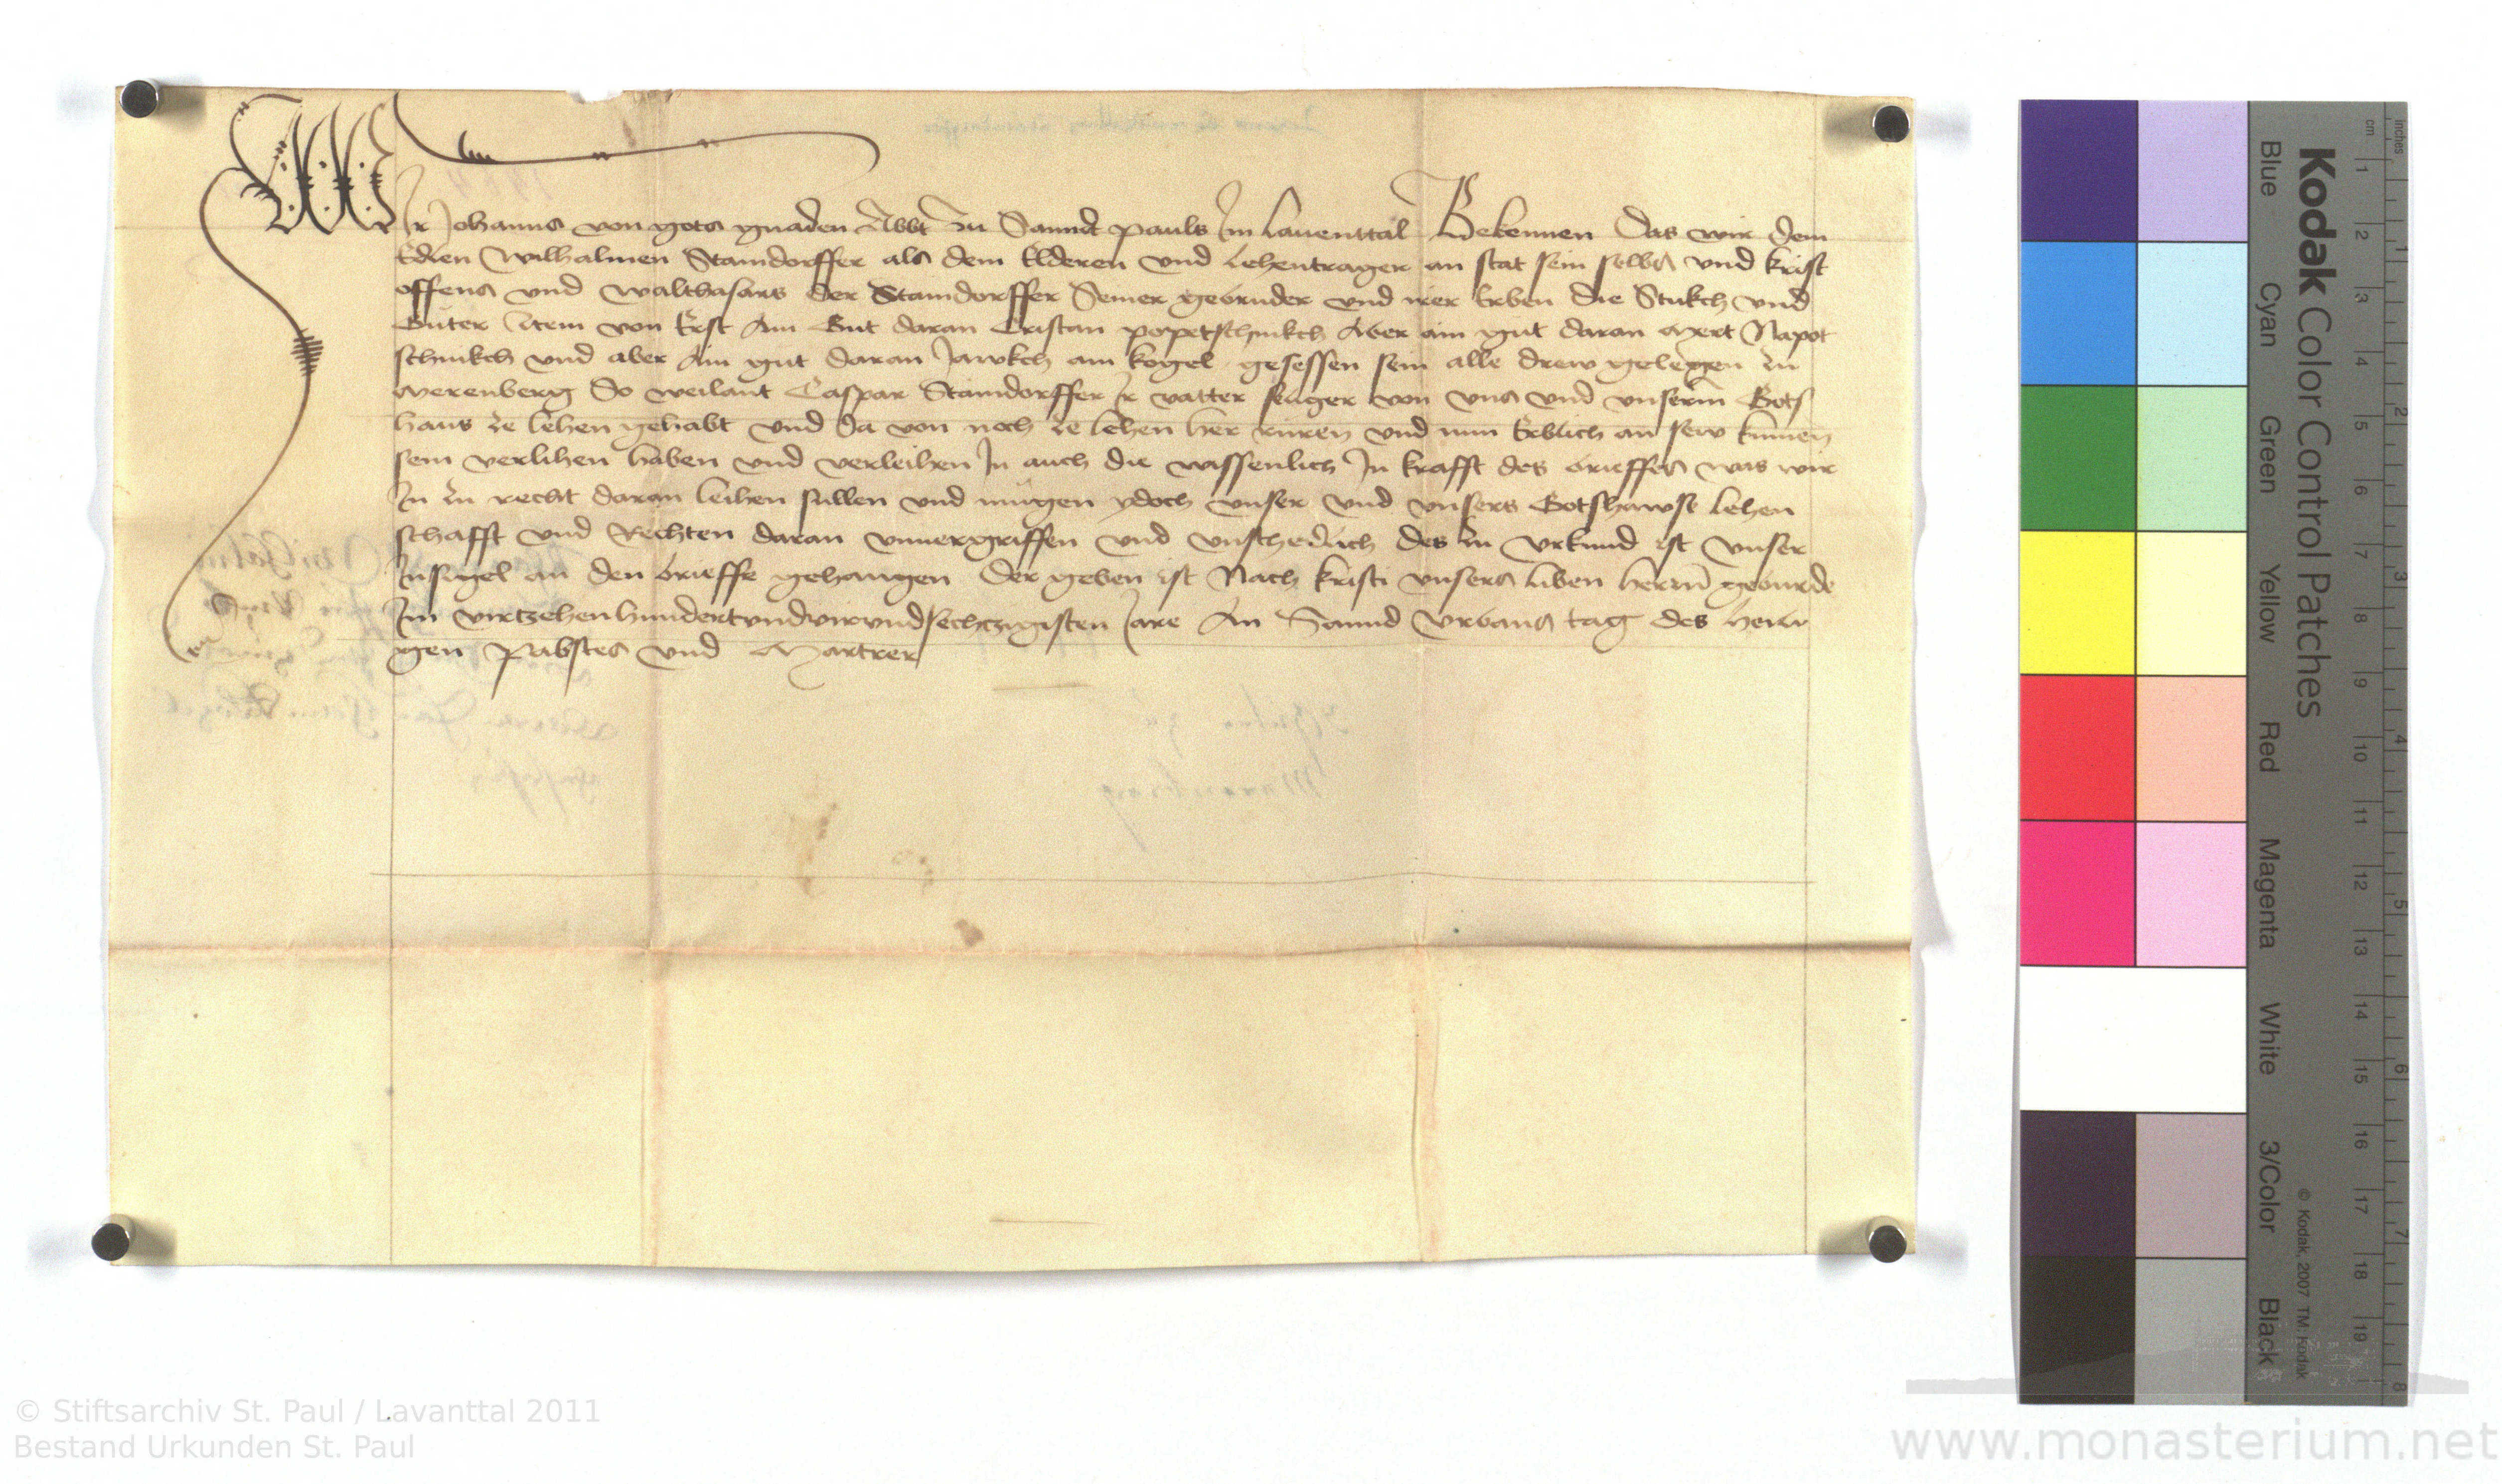 Wir Johanns von gots gnaden Abbt zu Sannd pauls Im lauenttal Bekennen Das wir dem
Edlen Wilhalmen Staindorffer als dem Elderen vnd lehentrager an stat sein selbs vnd krist
offens vnd walthasars der Staindorffer Seiner gebruder vnd irer Erben die Stukch vnd
Guter Item von Erst Ain Gut daran Cristan popetschnikch Aber ain gut daran Mert Napot
schnikch vnd aber Ain gut daran Jawkch am kogel gesessen sein alle drew gelegen zu
Merenberg So weilant Caspar Staindorffer Ir vatter seliger von vns vnd vnserm Gots
haus ze lehen gehabt vnd da von noch ze lehen her ruren vnd nun Erblich an sew kumen
sein verlihen haben vnd verleihen In auch die wissenlich In krafft des brieffes was wir
In zu recht daran leihen sullen vnd mugen ydoch vnser vnd vnsers Gotshawse lehen
schafft vnd Rechten daran vnuergriffen vnd vnschedlich des zu vrkund ist vnser
Insigel an den brieffe gehangen Der geben ist Nach kristi vnsers liben herrn geburde
Im virtzehenhundertvndvirvndsechtzigisten Jare An Sannd Vrbans tag des heili
gen Pabstes vnd Martrer
Kodak Color Control Patches
Blue Cyan Green Yellow Red Magenta White 3/Color Black
© Kodak, 2007 TM: Kodak
cm 1 2 3 4 5 6 7 8 9 10 11 12 13 14 15 16 17 18 19
inches 1 2 3 4 5 6 7 8
© Stiftsarchiv St. Paul / Lavanttal 2011
Bestand Urkunden St. Paul
www.monasterium.net